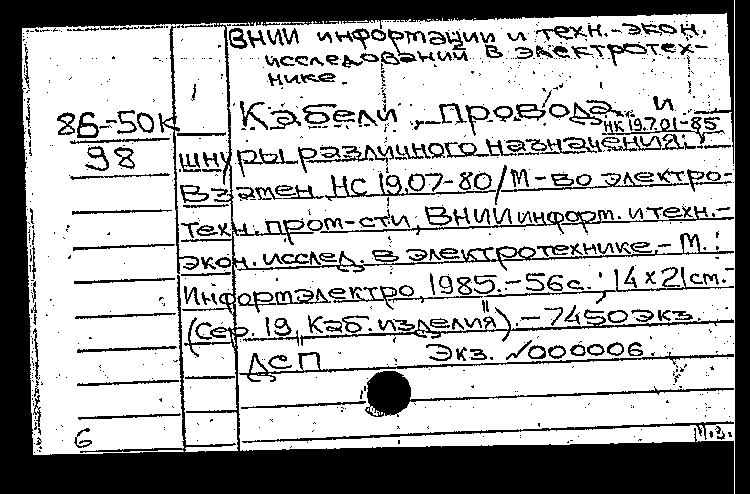 ВНИИ информации и техн.-экон.
исследований в электротех-
нике.
86-50К
98
Кабели, провода и
НК 19.7.01-85
шнуры различного назначения:
Взамен НС 19.07-80/М-во электро-
техн. пром-сти, ВНИИ информ. и техн.-
экон. исслед. в электротехнике.- М.:
Информэлектро, 1985.-56с.; 14х21см.-
(Сер. 19, "Каб. изделия").-7450экз.
ДСП Экз. №000006.
6